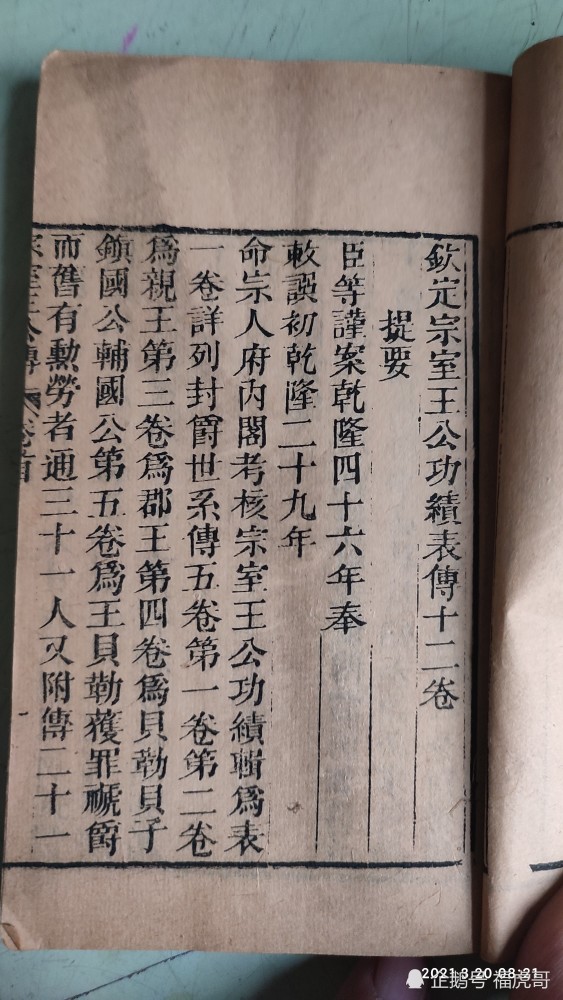 欽定宗室王公功績表傳十二卷
提要
臣等謹案乾隆四十六年奉
敕譔初乾隆二十九年
命宗人府内閣考核宗室王公功績輯爲表
一卷詳列封爵世系傳五卷第一卷第二卷
爲親王第三卷爲郡王第四卷爲貝勒貝子
鎮國公輔國公第五卷爲王貝勒獲罪褫爵
而舊有勳勞者通三十一人又附傳二十一
宗室王公傳 卷首
2021.3.20 08:21
企鹅号 福虎哥